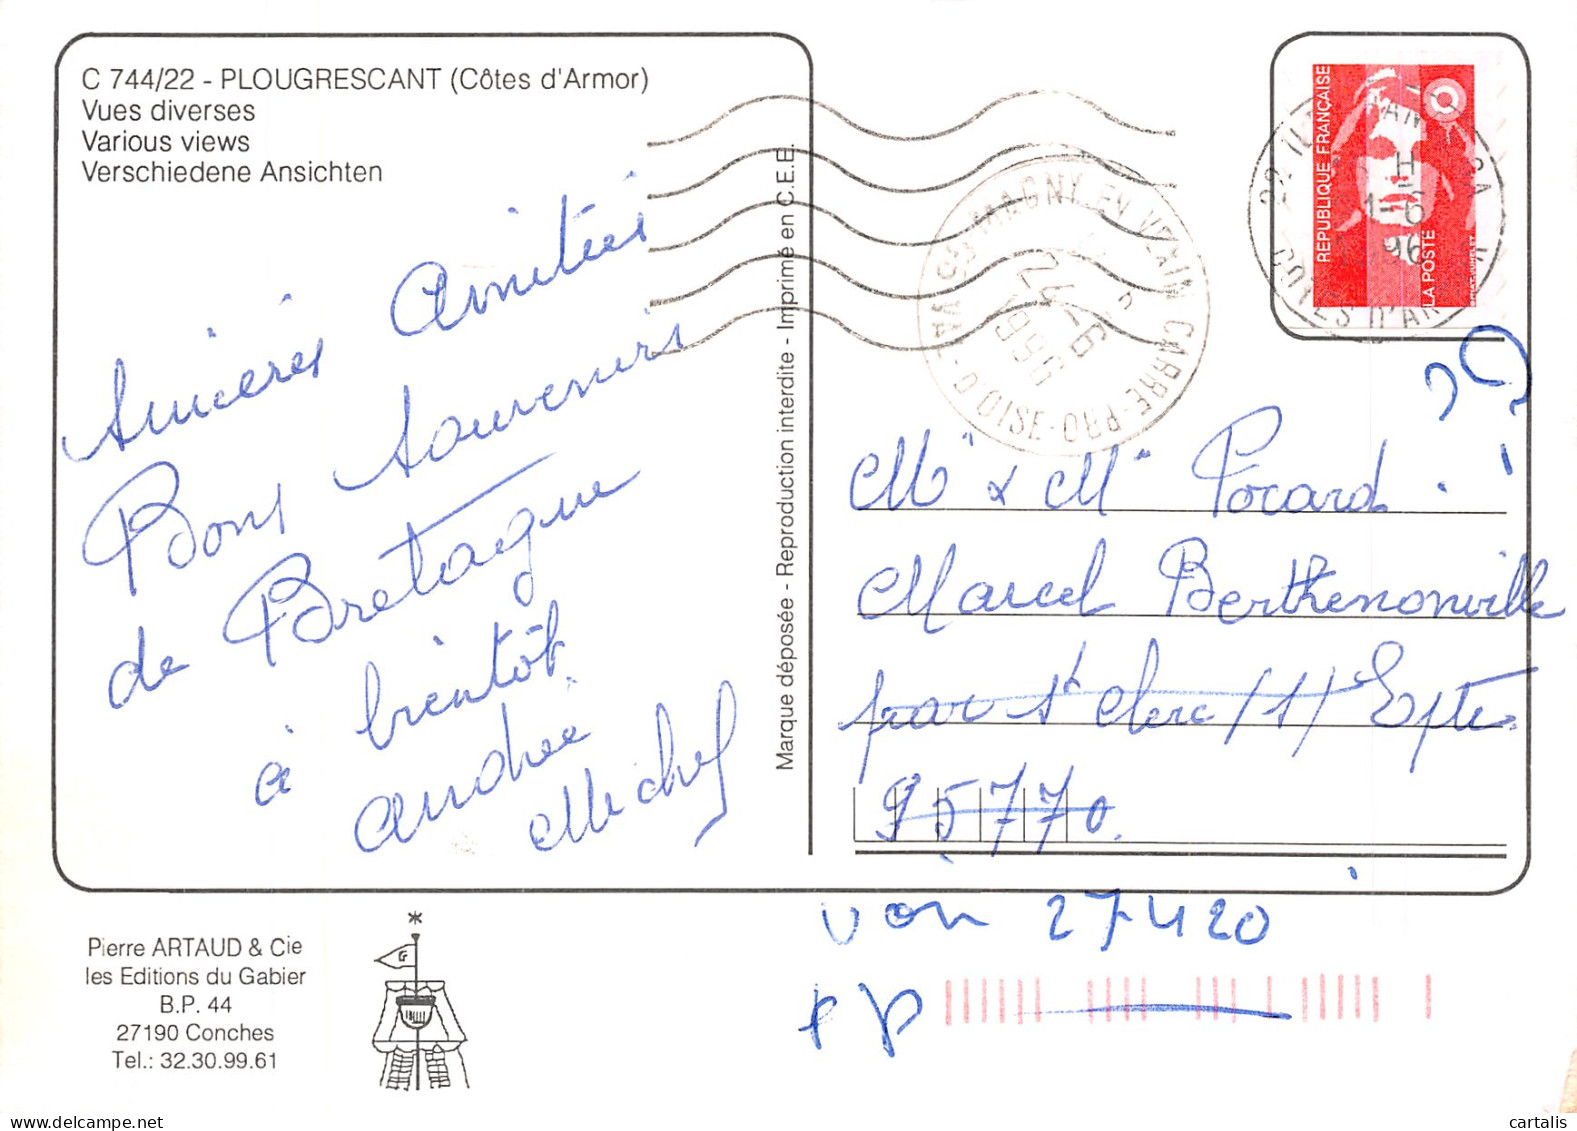 C 744/22 - PLOUGRESCANT (Côtes d'Armor)
Vues diverses
Various views
Verschiedene Ansichten
Sincères Amitiés
Bons Souvenirs
de Bretagne
à bientôt
Andrée
Michel
Pierre ARTAUD & Cie
les Editions du Gabier
B.P. 44
27190 Conches
Tel.: 32.30.99.61
Marque déposée - Reproduction interdite - Imprimé en C.E.E.
MAGNY EN VEXIN CARRE-PRO VAL-D'OISE
24-6
1996
RÉPUBLIQUE FRANÇAISE
LA POSTE
22
CÔTES D'AR
H
1-6
96
?
Mr & Mme Pocard
Marcel Berthenonville
par St Clerc /s/ Epte
95770
voir 27420